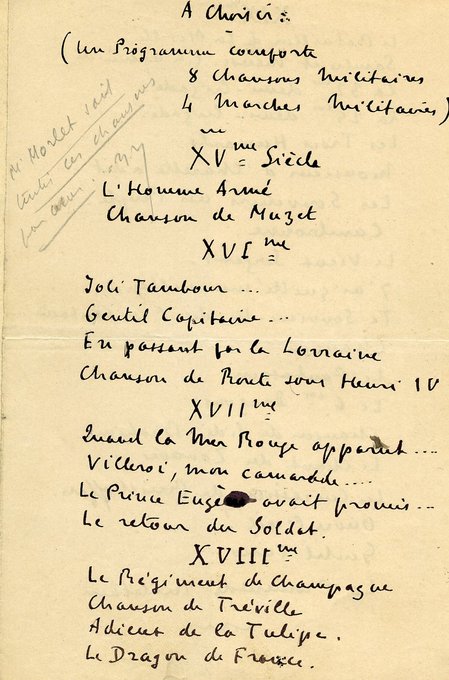 A Choisir :
(Un Programme comporte
8 Chansons Militaires
4 Marches Militaires)
Mr Morlet sait
toutes ces chansons
par
XVme Siècle
L'Homme Armé
Chanson de Muzet
XVIme
Joli Tambour ...
Gentil Capitaine ...
En passant par la Lorraine
Chanson de Route sous Henri IV
XVIIme
Quand la Mer Rouge apparut ...
Villeroi, mon camarade ....
Le Prince Eugène avait promis ...
Le retour du Soldat.
XVIIIme
Le Régiment de Champagne
Chanson de Tréville
Adieux de la Tulipe.
Le Dragon de France.